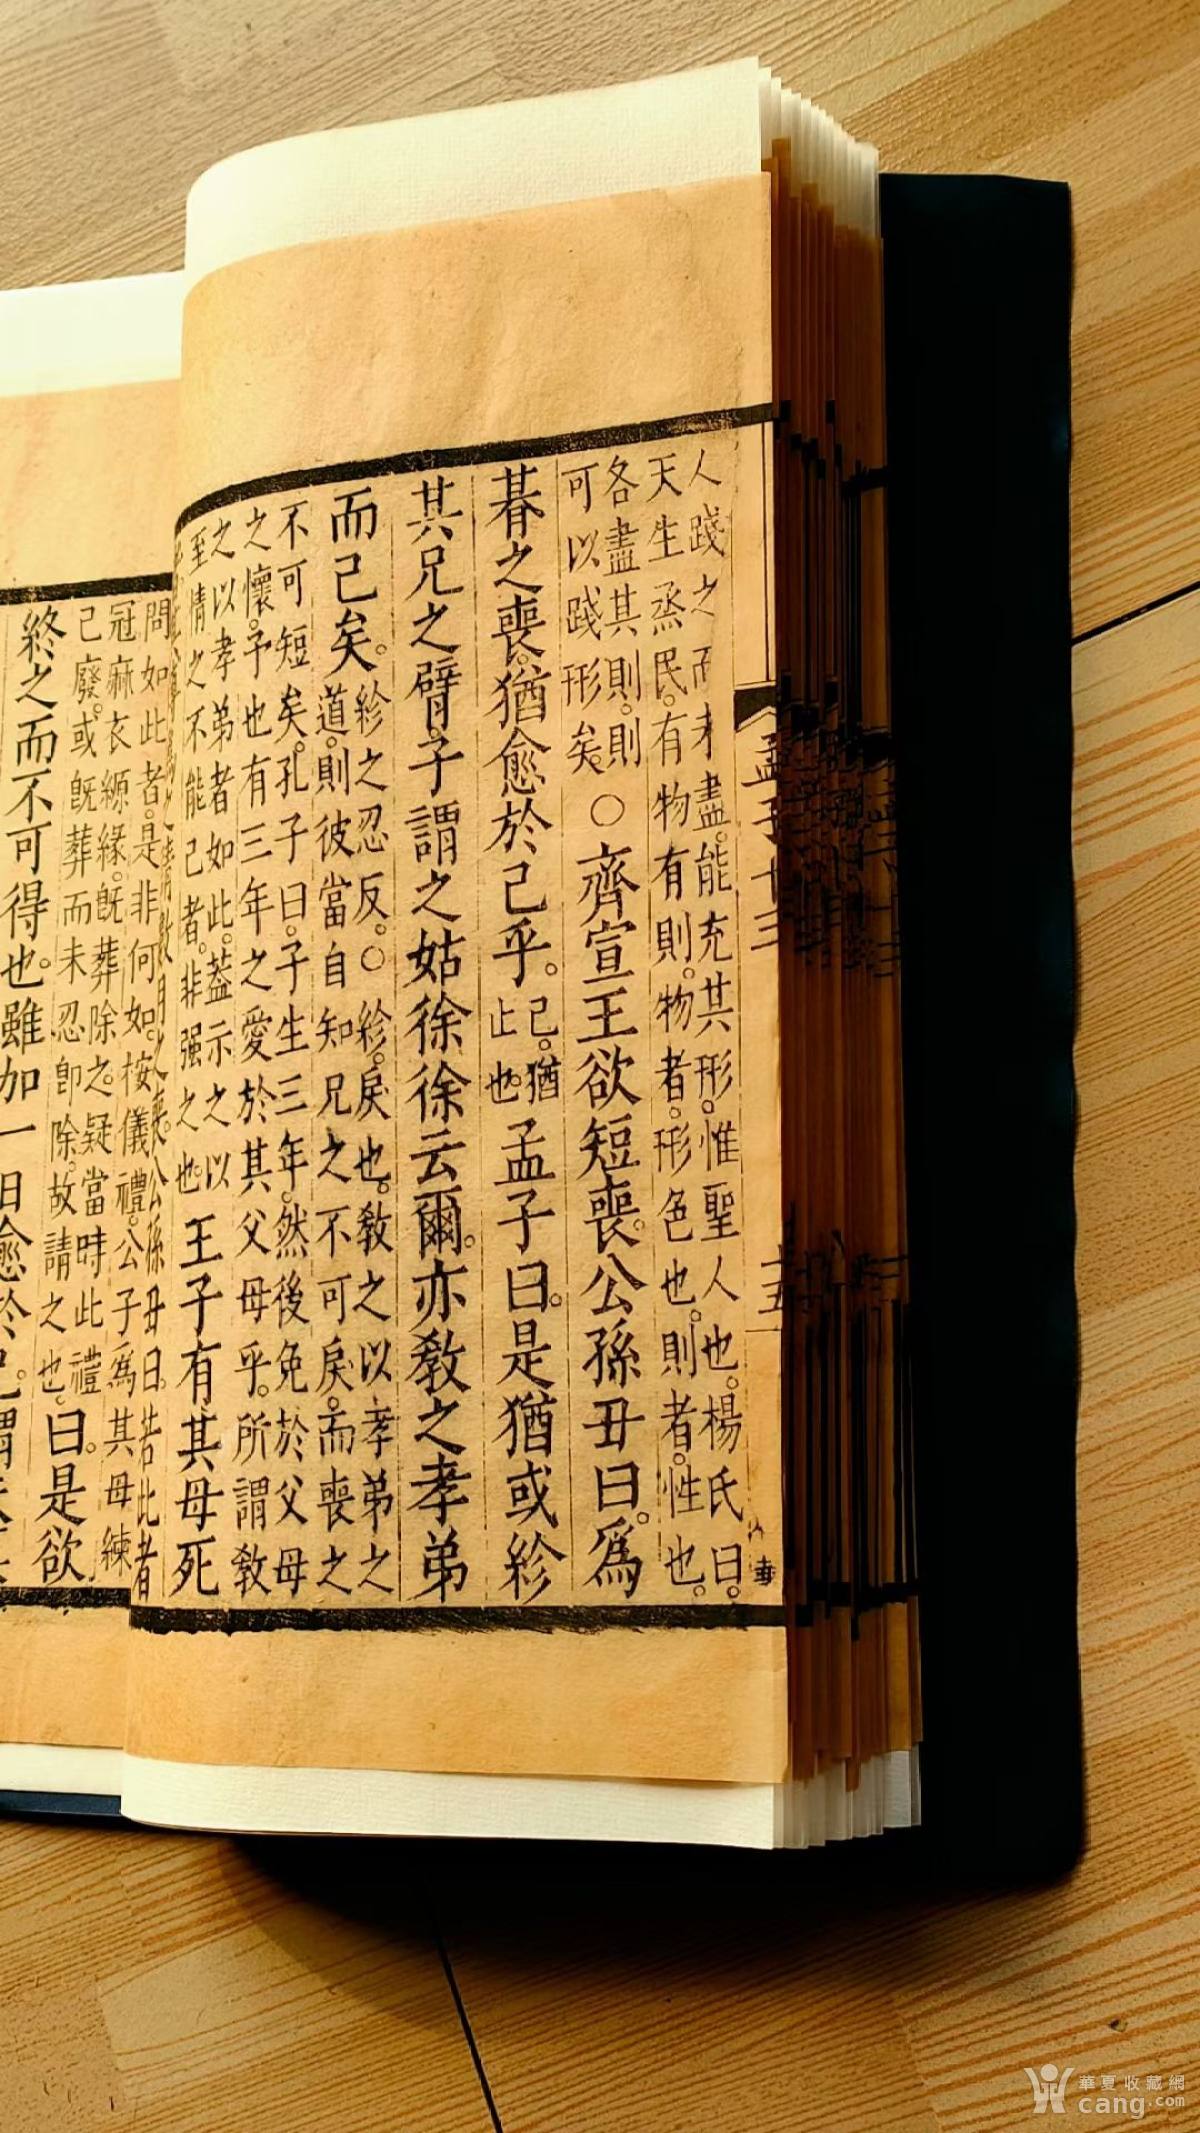 孟子十三
十五
人踐之而未盡。能充其形。惟聖人也。楊氏曰。
天生烝民。有物有則。物者。形色也。則者。性也。
各盡其則。則
可以踐形矣。
○齊宣王欲短喪。公孫丑曰。爲
朞之喪。猶愈於已乎。
已。猶
止也。
孟子曰。是猶或紾
其兄之臂。子謂之姑徐徐云爾。亦敎之孝弟
而已矣。
紾之忍反。○紾。戾也。敎之以孝弟之
道。則彼當自知兄之不可戾。而喪之
不可短矣。孔子曰。子生三年。然後免於父母
之懷。予也有三年之愛於其父母乎。所謂敎
之以孝弟者如此。蓋示之以
至情之不能已者。非强之也。
王子有其母死
公孫丑曰。若此者
問如此者。是非何如。按儀禮。公子爲其母練
冠麻衣縓緣。旣葬除之。疑當時此禮
已廢。或旣葬而未忍卽除。故請之也。
曰。是欲
終之而不可得也。雖加一日愈於已。謂夫
華夏收藏網
cang.com